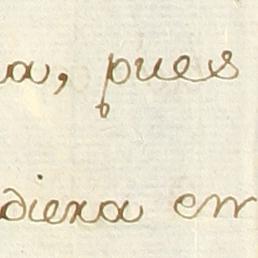 a, pues
diera en